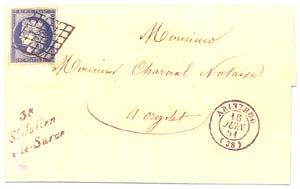 Monsieur
Monsieur Charnal Notaire
a orgelet
38
St Julien
s-le-Suran
ARINTHOD
16
JUIN
51
(38)